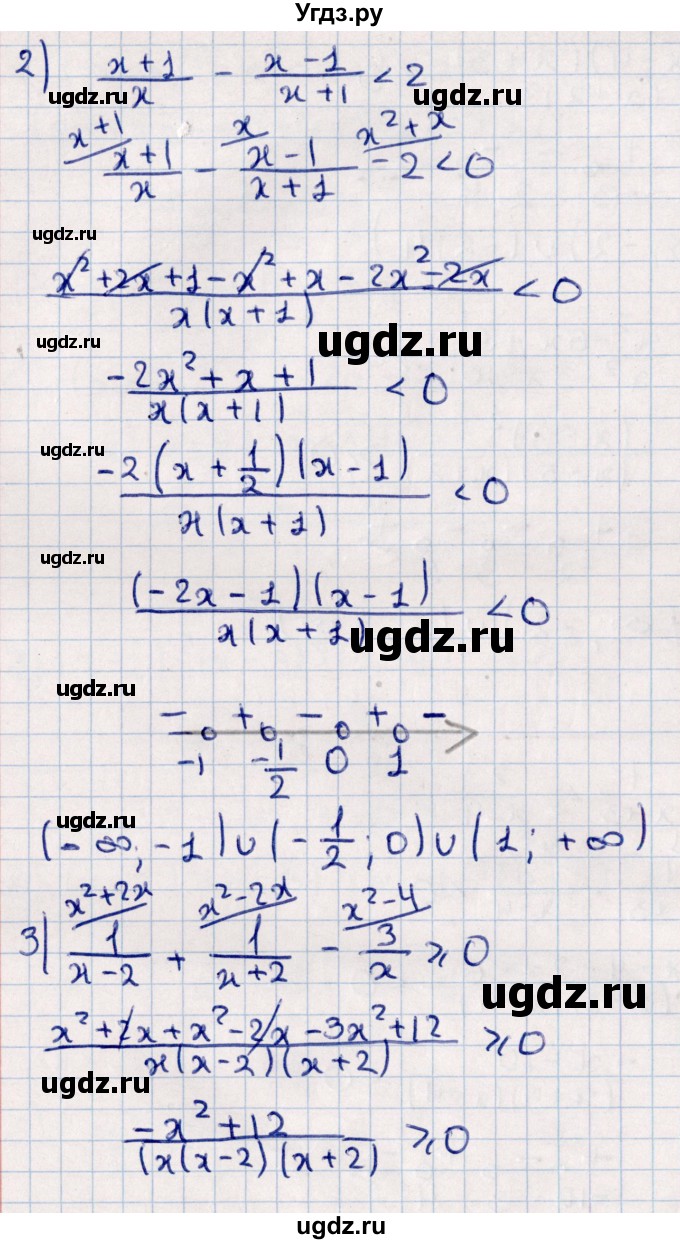 Угдз.ру
2) (x+1)/x - (x-1)/(x+1) < 2
ugdz.ru ugdz.ru
x+1 x x²+x
(x+1)/x - (x-1)/(x+1) - 2 < 0
ugdz.ru
(x²+2x+1-x²+x-2x²-2x)/(x(x+1)) < 0
ugdz.ru ugdz.ru
(-2x²+x+1)/(x(x+1)) < 0
ugdz.ru
(-2(x+1/2)(x-1))/(x(x+1)) < 0
ugdz.ru
((-2x-1)(x-1))/(x(x+1)) < 0
ugdz.ru
ugdz.ru
- + - + -
-1 -1/2 0 1
ugdz.ru
(-∞;-1)∪(-1/2;0)∪(1;+∞)
x²+2x x²-2x x²-4
3) 1/(x-2) + 1/(x+2) - 3/x ⩾ 0
ugdz.ru ugdz.ru
(x²+2x+x²-2x-3x²+12)/(x(x-2)(x+2)) ⩾ 0
ugdz.ru
(-x²+12)/((x(x-2)(x+2)) ⩾ 0
ugdz.ru